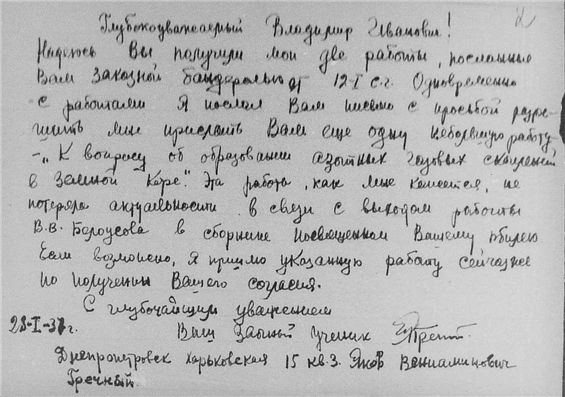 2
Глубокоуважаемый Владимир Иванович!
Надеюсь Вы получили мои две работы, посланные
Вам заказной бандеролью от 12-I с.г. Одновременно
с работами я послал Вам письмо с просьбой разре-
шить мне прислать Вам еще одну небольшую работу
- „К вопросу об образовании азотных газовых скоплений
в земной коре". Эта работа, как мне кажется, не
потеряла актуальности в связи с выходом работы
В.В. Белоусова в сборнике посвященном Вашему юбилею
Если возможно, я пришлю указанную работу сейчас же
по получении Вашего согласия.
С глубочайшим уважением
28-I-37 г. Ваш заочный ученик
Днепропетровск Харьковская 15 кв. 3. Яков Вениаминович
Гречный.